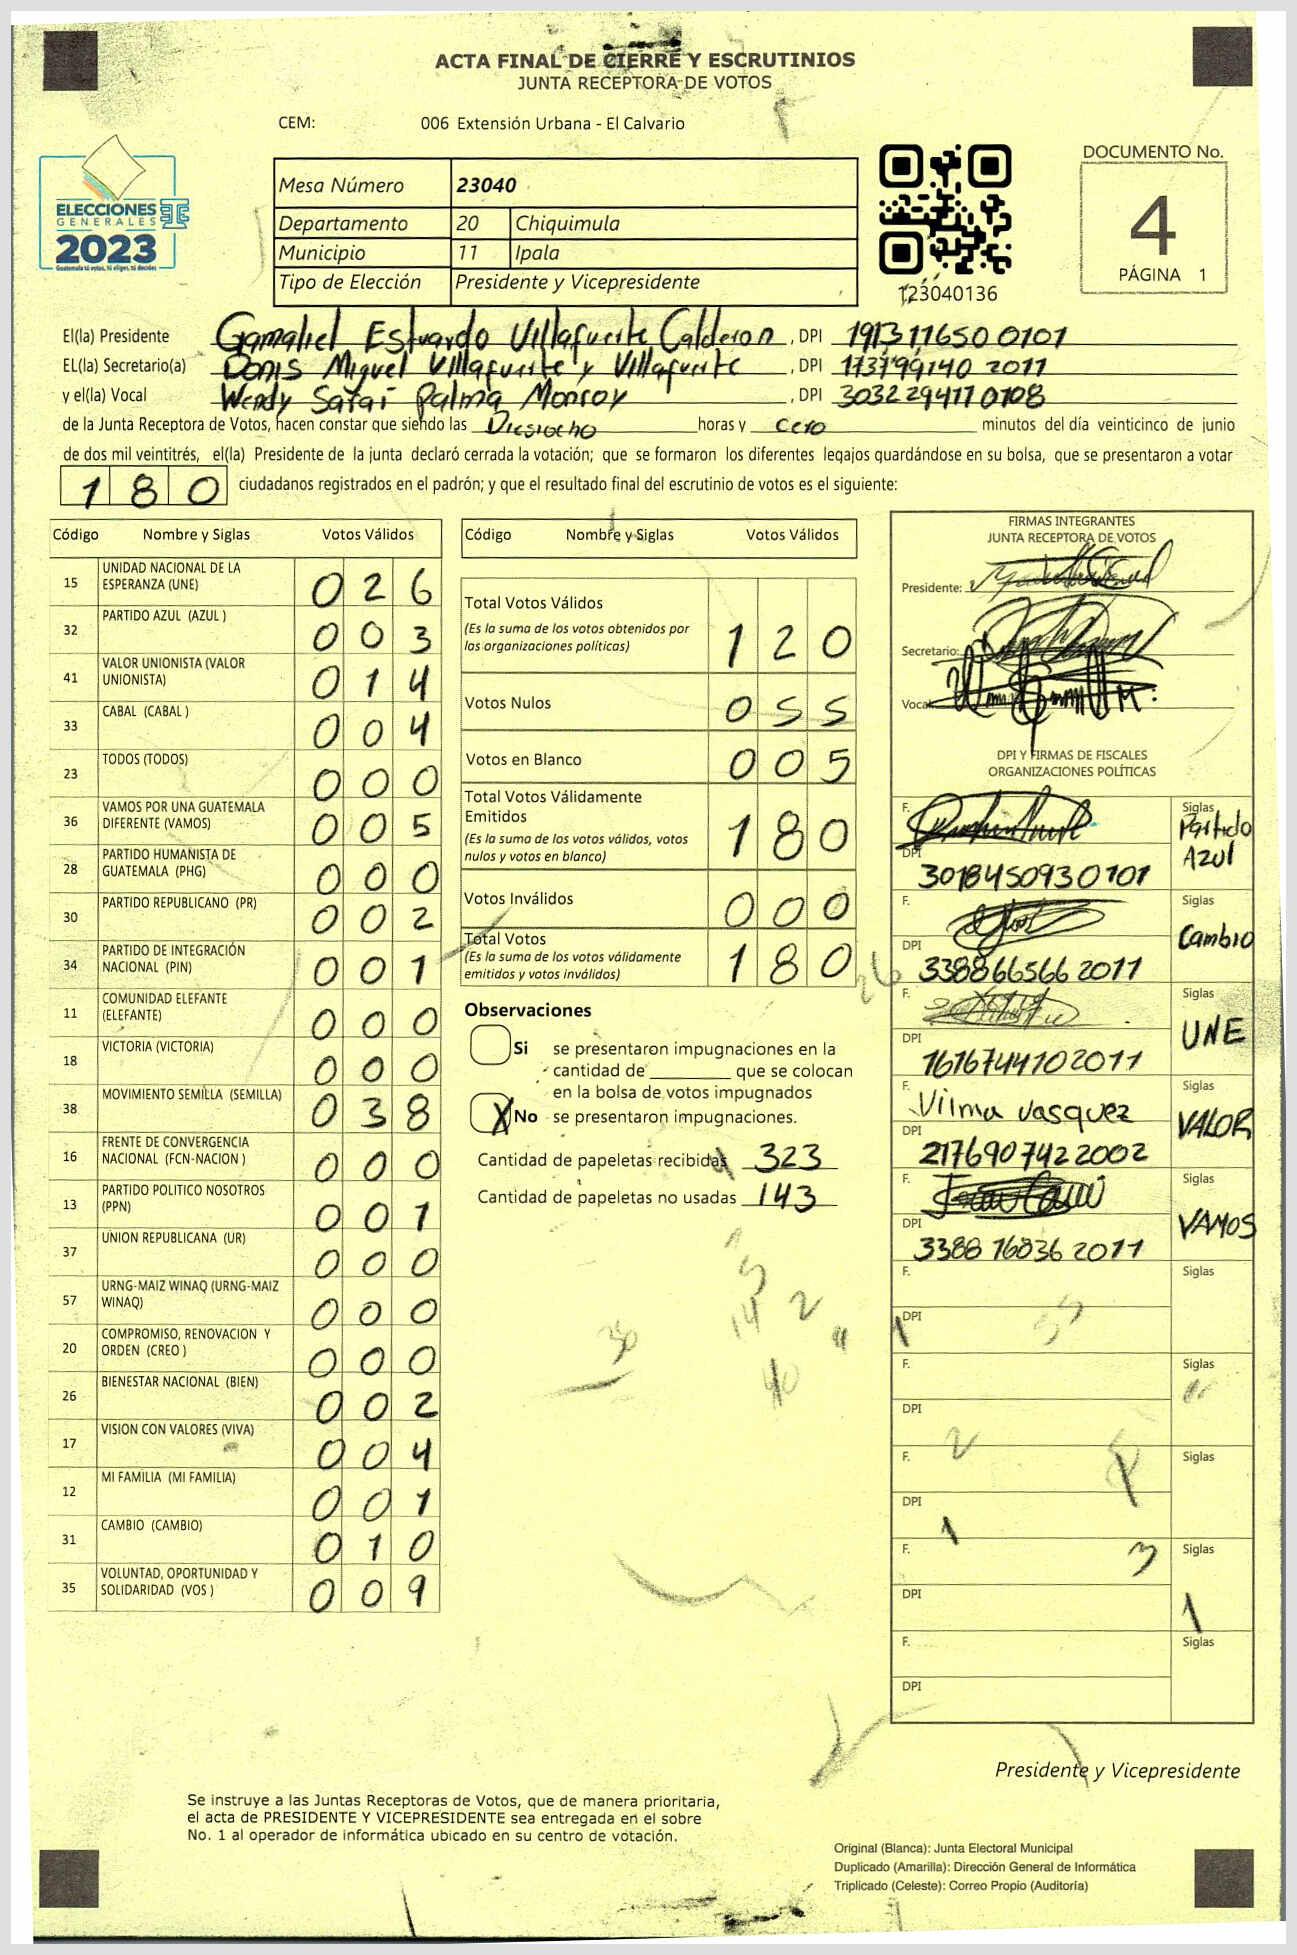 ACTA FINAL DE CIERRE Y ESCRUTINIOS
JUNTA RECEPTORA DE VOTOS
CEM: 006 Extensión Urbana - El Calvario
ELECCIONES
GENERALES
2023
Guatemala tú votas, tú eliges, tú decides
Mesa Número 23040
Departamento 20 Chiquimula
Municipio 11 Ipala
Tipo de Elección Presidente y Vicepresidente
123040136
DOCUMENTO No.
4
PÁGINA 1
El(la) Presidente Gamaliel Estuardo Villafuerte Calderon, DPI 19131176500101
EL(la) Secretario(a) Donis Miguel Villafuerte y Villafuerte, DPI 173799140 2011
y el(la) Vocal Wendy Sarai Palma Monroy, DPI 3032294170108
de la Junta Receptora de Votos, hacen constar que siendo las Diesiocho horas y cero minutos del día veinticinco de junio
de dos mil veintitrés, el(la) Presidente de la junta declaró cerrada la votación; que se formaron los diferentes legajos guardándose en su bolsa, que se presentaron a votar
180 ciudadanos registrados en el padrón; y que el resultado final del escrutinio de votos es el siguiente:
Código Nombre y Siglas Votos Válidos
15 UNIDAD NACIONAL DE LA ESPERANZA (UNE) 026
32 PARTIDO AZUL (AZUL ) 003
41 VALOR UNIONISTA (VALOR UNIONISTA) 014
33 CABAL (CABAL ) 004
23 TODOS (TODOS) 000
36 VAMOS POR UNA GUATEMALA DIFERENTE (VAMOS) 005
28 PARTIDO HUMANISTA DE GUATEMALA (PHG) 000
30 PARTIDO REPUBLICANO (PR) 002
34 PARTIDO DE INTEGRACIÓN NACIONAL (PIN) 001
11 COMUNIDAD ELEFANTE (ELEFANTE) 000
18 VICTORIA (VICTORIA) 000
38 MOVIMIENTO SEMILLA (SEMILLA) 038
16 FRENTE DE CONVERGENCIA NACIONAL (FCN-NACION ) 000
13 PARTIDO POLITICO NOSOTROS (PPN) 001
37 UNION REPUBLICANA (UR) 000
57 URNG-MAIZ WINAQ (URNG-MAIZ WINAQ) 000
20 COMPROMISO, RENOVACION Y ORDEN (CREO ) 000
26 BIENESTAR NACIONAL (BIEN) 002
17 VISION CON VALORES (VIVA) 004
12 MI FAMILIA (MI FAMILIA) 001
31 CAMBIO (CAMBIO) 010
35 VOLUNTAD, OPORTUNIDAD Y SOLIDARIDAD (VOS ) 009
Código Nombre y Siglas Votos Válidos
Total Votos Válidos 120
(Es la suma de los votos obtenidos por
las organizaciones políticas)
Votos Nulos 055
Votos en Blanco 005
Total Votos Válidamente
Emitidos 180
(Es la suma de los votos válidos, votos
nulos y votos en blanco)
Votos Inválidos 000
Total Votos 180
(Es la suma de los votos válidamente
emitidos y votos inválidos)
Observaciones
Si se presentaron impugnaciones en la
cantidad de ________ que se colocan
en la bolsa de votos impugnados
X No se presentaron impugnaciones.
Cantidad de papeletas recibidas 323
Cantidad de papeletas no usadas 143
FIRMAS INTEGRANTES
JUNTA RECEPTORA DE VOTOS
Presidente:
Secretario:
Vocal:
DPI Y FIRMAS DE FISCALES
ORGANIZACIONES POLÍTICAS
F. Siglas Partido Azul
DPI 3018450930101
F. Siglas Cambio
DPI 338866566 2011
F. Siglas UNE
DPI 1616744102011
F. Vilma Vasquez Siglas VALOR
DPI 2176907422002
F. Siglas VAMOS
DPI 3388 76836 2011
F. Siglas
DPI
F. Siglas
DPI
F. Siglas
DPI
F. Siglas
DPI
F. Siglas
DPI
Presidente y Vicepresidente
Se instruye a las Juntas Receptoras de Votos, que de manera prioritaria,
el acta de PRESIDENTE Y VICEPRESIDENTE sea entregada en el sobre
No. 1 al operador de informática ubicado en su centro de votación.
Original (Blanca): Junta Electoral Municipal
Duplicado (Amarilla): Dirección General de Informática
Triplicado (Celeste): Correo Propio (Auditoría)